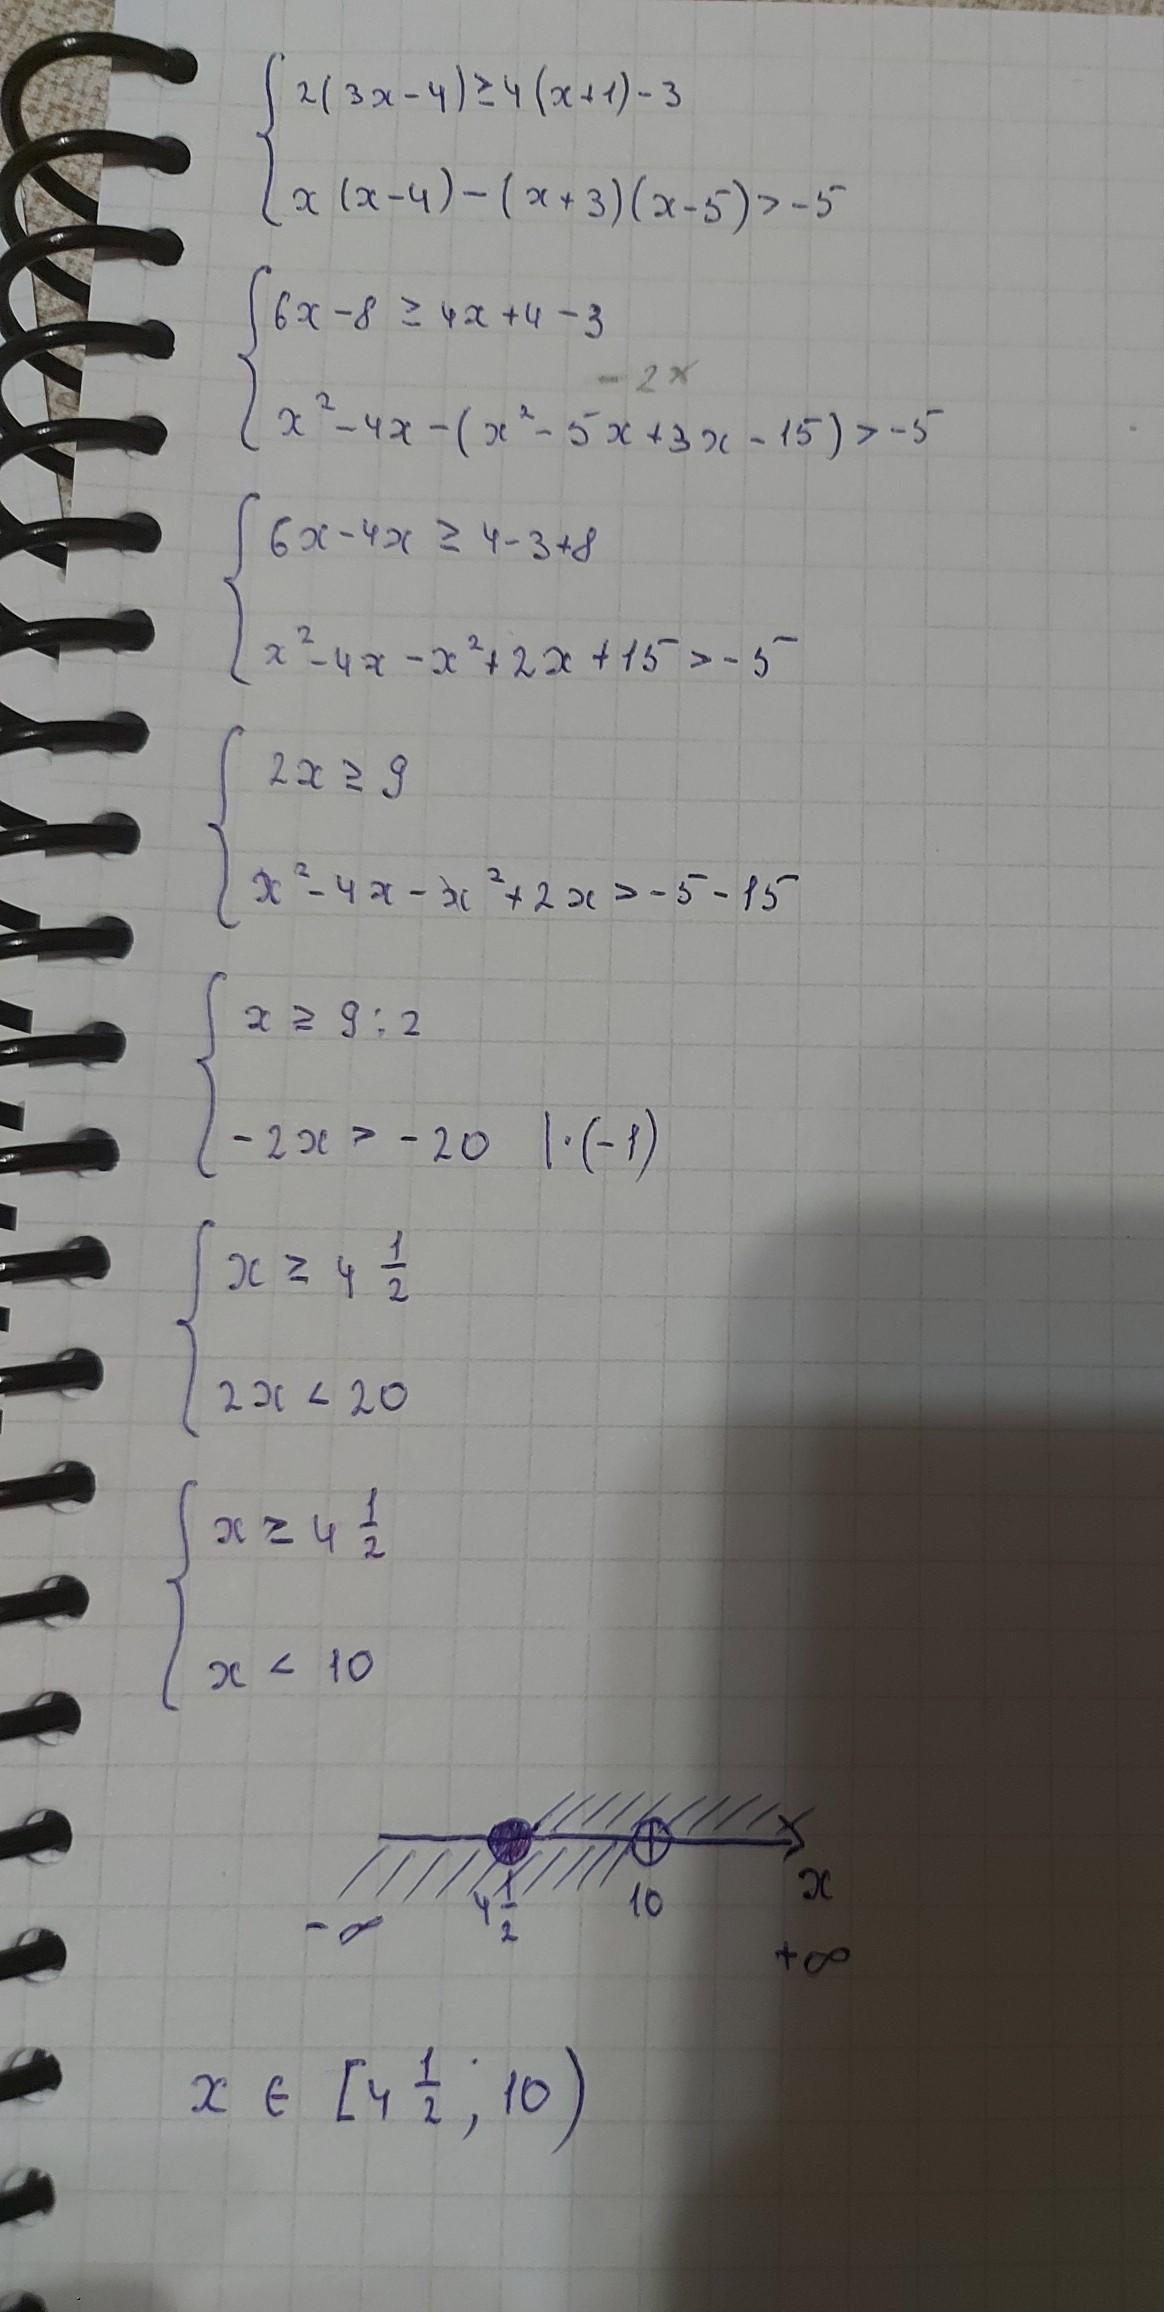 2(3x-4)≥4(x+1)-3
x(x-4)-(x+3)(x-5)>-5
6x-8≥4x+4-3
-2x
x²-4x-(x²-5x+3x-15)>-5
6x-4x≥4-3+8
x²-4x-x²+2x+15>-5
2x≥9
x²-4x-x²+2x>-5-15
x≥9:2
-2x>-20 |·(-1)
x≥4 1/2
2x<20
x≥4 1/2
x<10
4 1/2 10 x
-∞ +∞
x∈[4 1/2; 10)